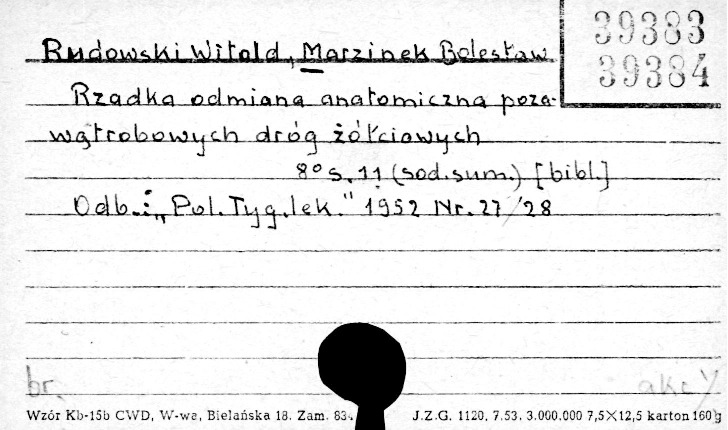 39383
39384
Rudowski Witold, Marzinek Bolesław
Rzadka odmiana anatomiczna poza-
wątrobowych dróg żółciowych
8° s. 11 (sod. sum.) [bibl.]
Odb.: "Pol. Tyg. lek." 1952 Nr. 27/28
br.
akc
Wzór Kb-15b CWD, W-wa, Bielańska 18. Zam. 83
J.Z.G. 1120. 7.53. 3.000.000 7,5×12,5 karton 160 g